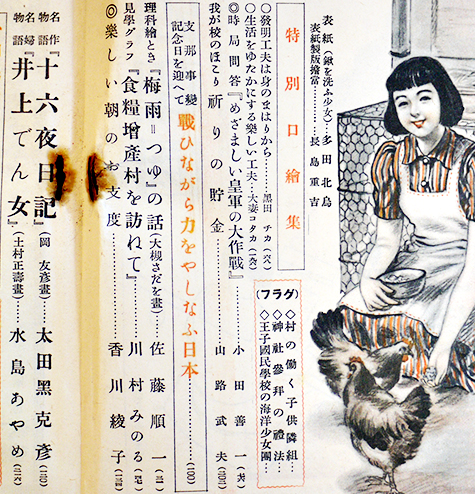 表紙(鍬を洗ふ少女)…多田北烏
表紙製版繪當………長島重吉
特別口繪集
◇發明工夫は身のまはりから……黑田チカ
◇生活をゆたかにする樂しい工夫…大妻コタカ
◎時局問答『めざましい皇軍の大作戰』……小田善一
我が校のほこり 祈りの貯金……山路武夫
支那事變記念日を迎へて 戰ひながら力をやしなふ日本……(100)
理科繪とき『梅雨=つゆ』の話(大槻さだを畫)……佐藤順一
見學グラフ『食糧增產村を訪ねて』……川村みのる
◎樂しい朝のお支度……香川綾子
名作物語『十六夜日記』(岡友彥畫)太田黑克彥
名婦物語『井上でん女』(土村正壽畫)水島あやめ
(グラフ)
◇村の働く子供隣組…
◇神社參拜の禮法
◇王子國民學校の海洋少女團…